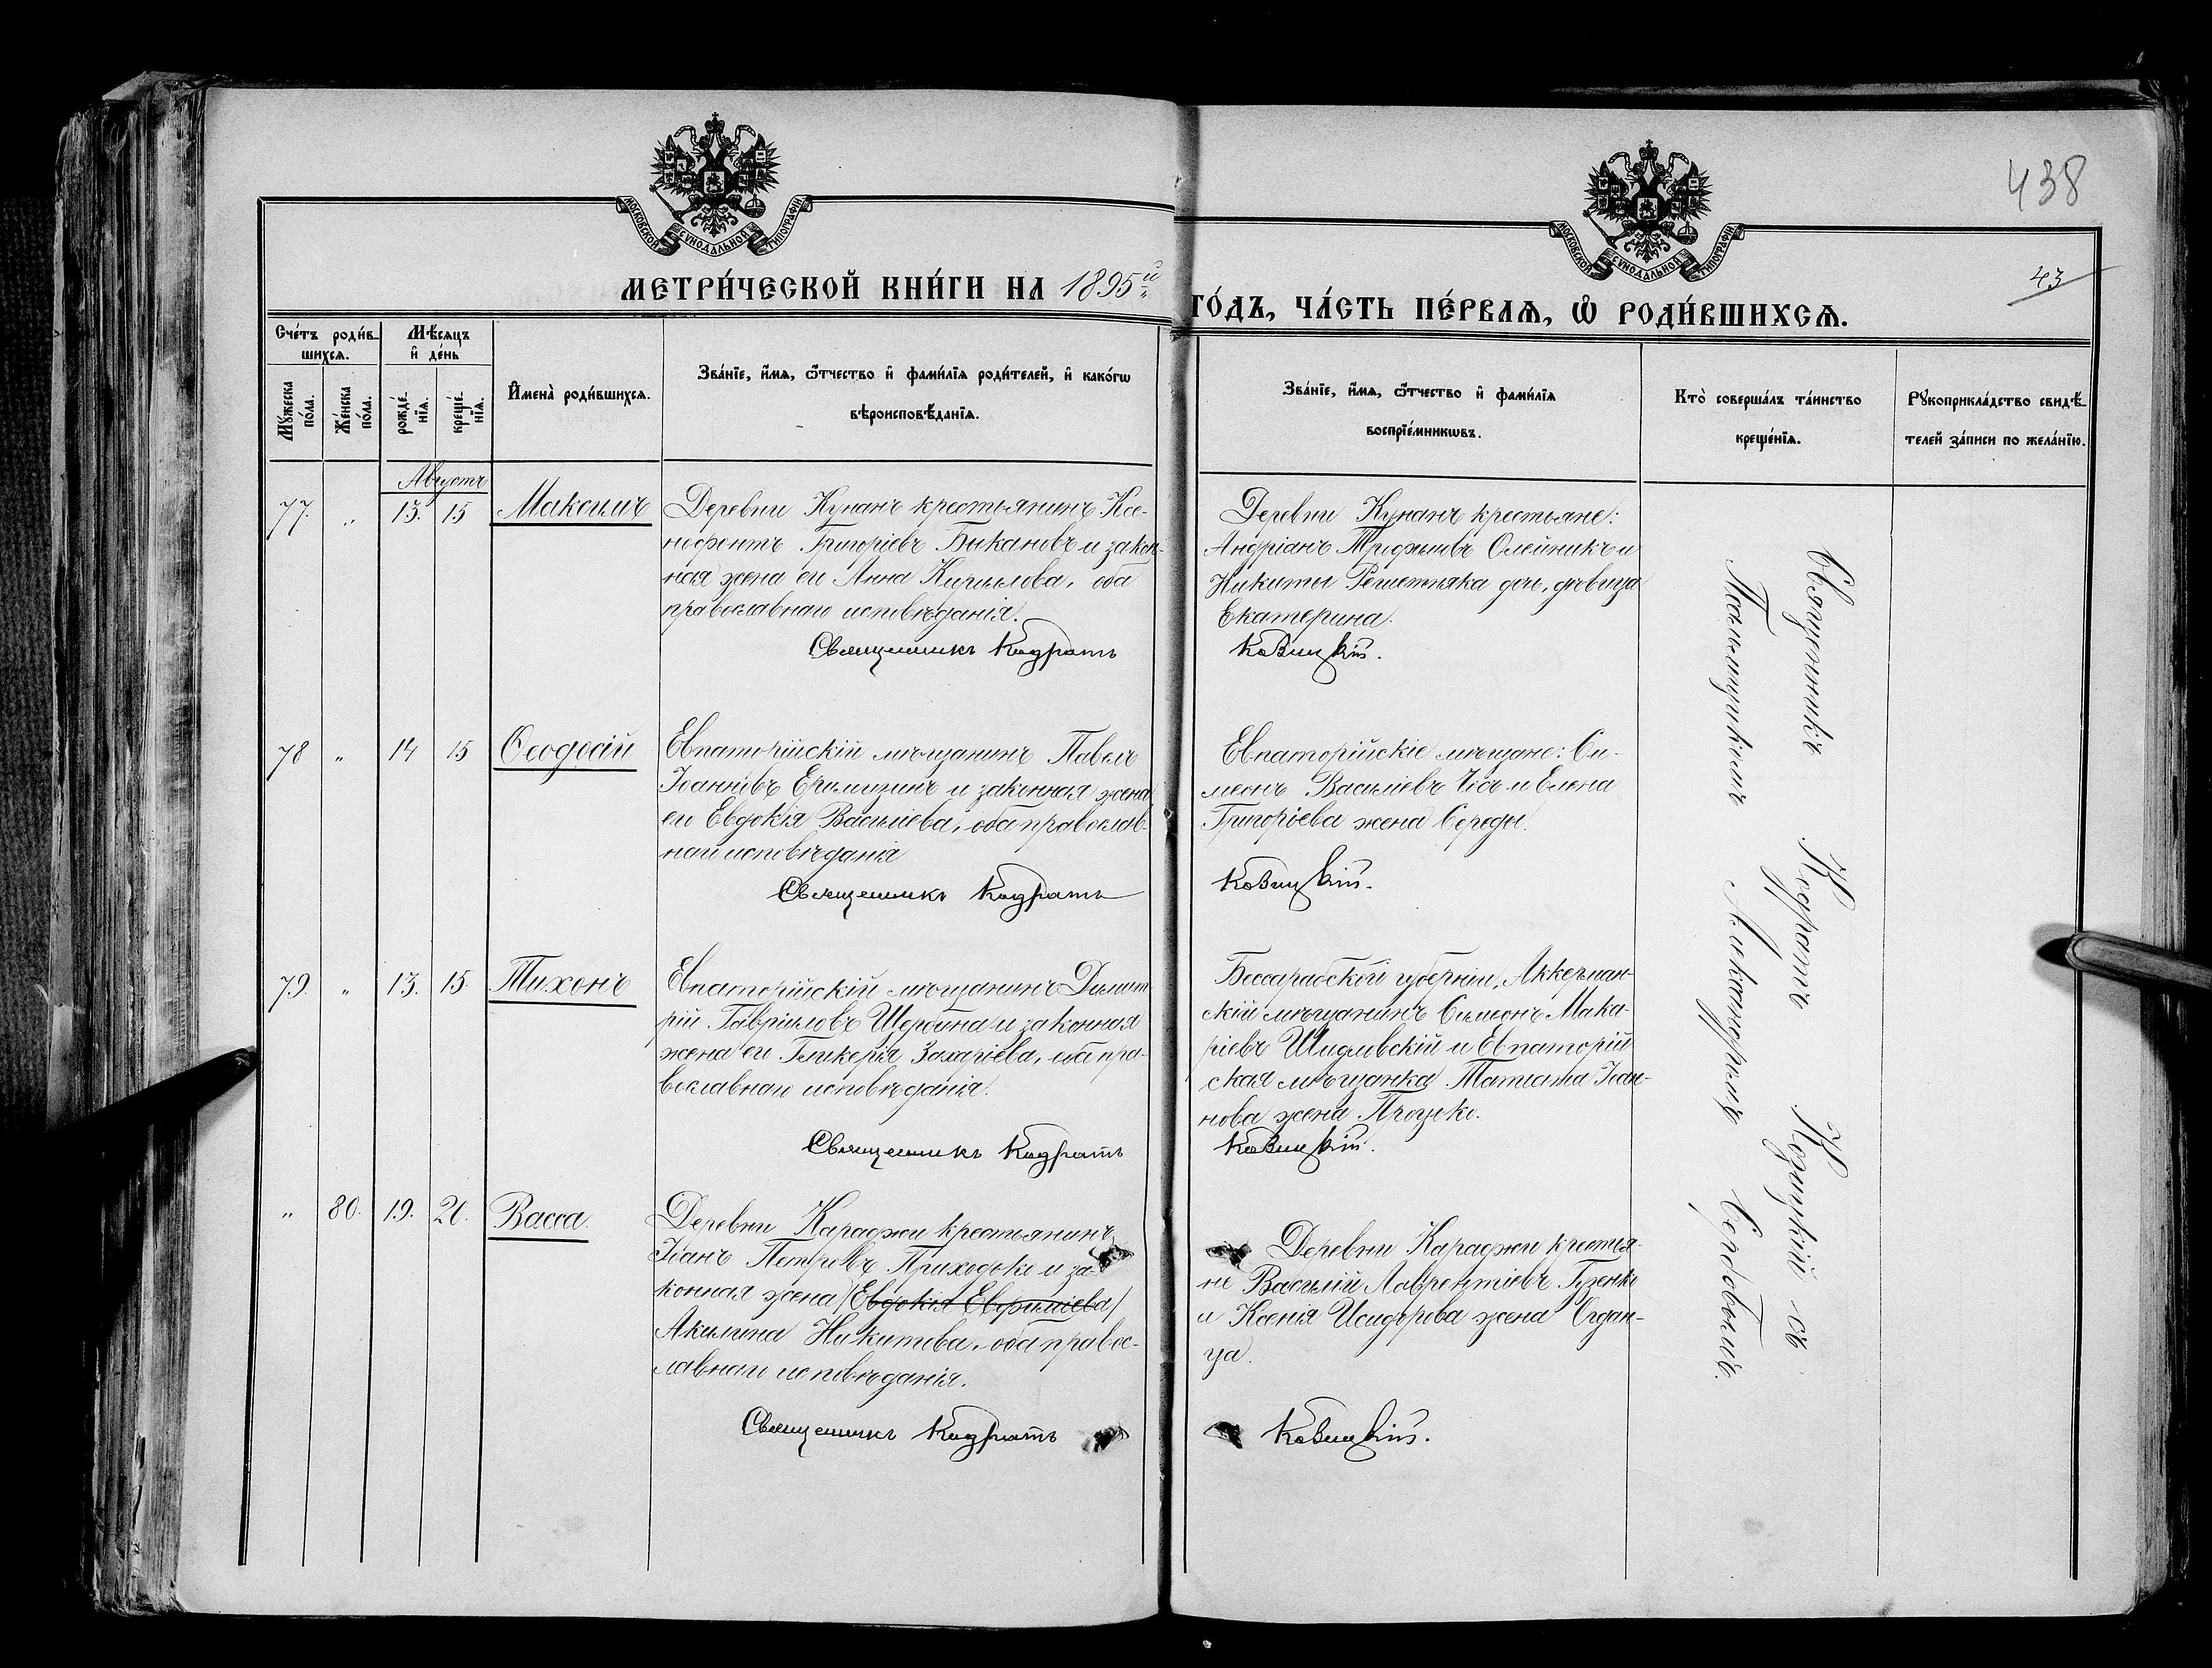 438
43
МОСКОВСКОЙ СѴНОДАЛЬНОЙ ТИПОГРАФІИ
МОСКОВСКОЙ СѴНОДАЛЬНОЙ ТИПОГРАФІИ
МЕТРИ́ЧЕСКОЙ КНИ́ГИ НА 1895й
ГО́ДЪ, ЧА́СТЬ ПЕ́РВАѦ, Ѡ РОДИ́ВШИХСѦ.
Сче́тъ роди́в-
шихсѧ.
Мѣ́сѧцъ
и҆ де́нь
Мꙋ́жеска
по́ла.
Же́нска
по́ла.
рожде́-
нїѧ.
креще́-
нїѧ.
И҆мена̀ роди́вшихсѧ.
Зва́нїе, и҆́мѧ, ѻ҆́тчество и҆ фами́лїѧ роди́телей, и҆ како́гѡ
вѣроисповѣ́данїѧ.
Зва́нїе, и҆́мѧ, ѻ҆́тчество и҆ фами́лїѧ
воспрїе́мникѡвъ.
Кто̀ соверша́лъ та́инство
креще́нїѧ.
Рꙋкоприкла́дство свидѣ́-
телей за́писи по жела́нїю.
Августъ
77. " 13. 15 Максимъ
Деревни Кунанъ крестьянинъ Ксе-
нофонтъ Григоріевъ Бикановъ и закон-
ная жена его Анна Кириллова, оба
православнаго исповѣданія.
Священникъ Кодратъ
Деревни Кунанъ крестьяне:
Андріанъ Трофимовъ Олейникъ и
Никиты Решетняка дочь, дѣвица
Екатерина.
Козицкій.
78 " 14 15 Ѳеодосій
Евпаторійскій мѣщанинъ Павелъ
Іоанновъ и законная жена
его Евдокія Василіева, оба православ-
наго исповѣданія
Священникъ Кодратъ
Евпаторійскіе мѣщане: Си-
меонъ Василіевъ и Елена
Григорьева жена Середы.
Козицкій.
79. " 13. 15. Тихонъ
Евпаторійскій мѣщанинъ Димит
рій Гавріиловъ Щербина и законная
жена его Гликерія Захаріева, оба пра-
вославнаго исповѣданія.
Священникъ Кодратъ
Бессарабской губерніи, Аккерман-
скій мѣщанинъ Симеонъ Мака-
ріевъ Шидловскій и Евпаторій
ская мѣщанка Татіана Іоан-
нова жена Проценко.
Козицкій.
" 80. 19. 20. Васса.
Деревни Караджи крестьянинъ
Іоанъ Петровъ Приходько и за-
конная жена /Евдокія Евфиміева/
Акилина Никитова, оба правос-
лавнаго исповѣданія.
Священникъ Кодратъ
Деревни Караджи крестья-
не Василій Лаврентіевъ Гузенко
и Ксенія Исидорова жена Огдан-
ца.
Козицкій.
Священникъ Кодратъ Козицкій съ
Псаломщикомъ Александромъ Сербовымъ.